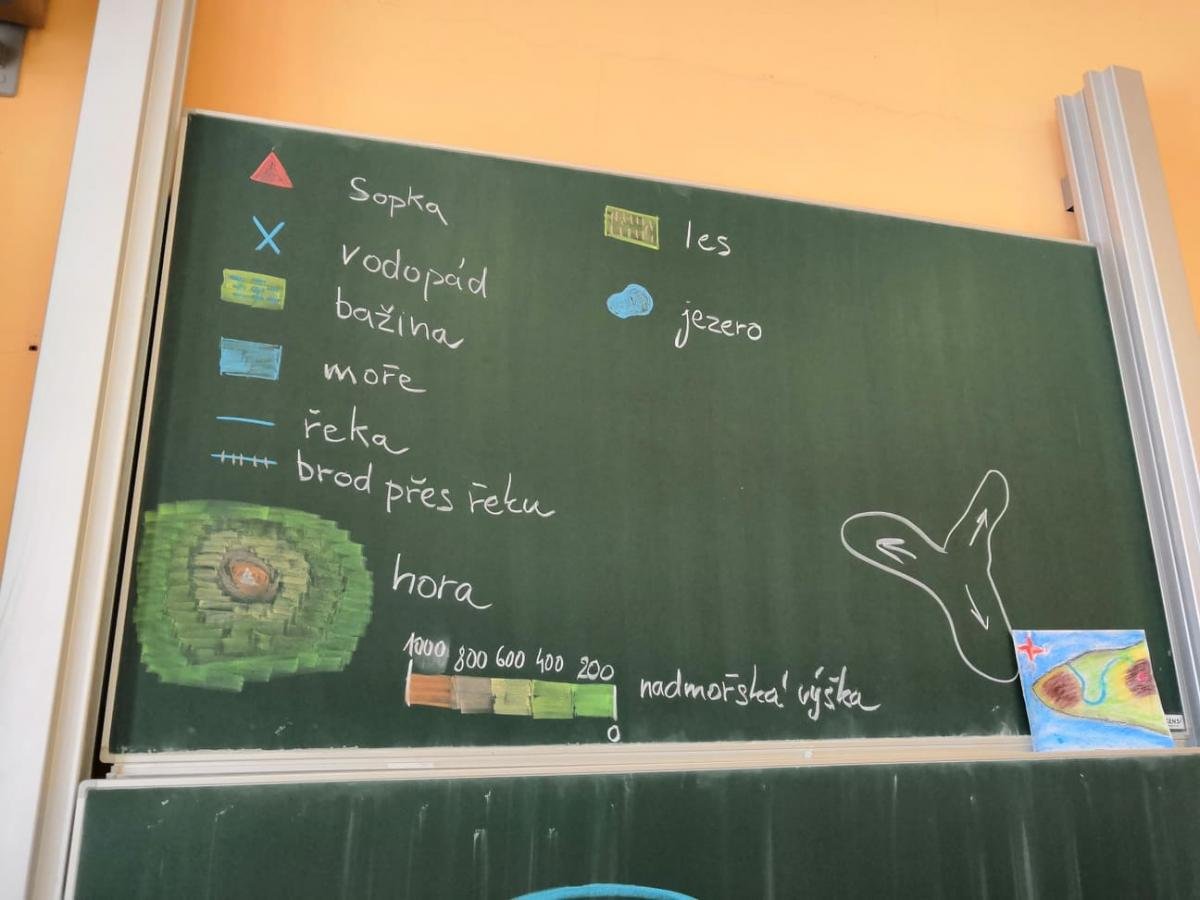 Sopka
vodopád
bažina
moře
řeka
brod přes řeku
hora
1000 800 600 400 200
0
nadmořská výška
les
jezero